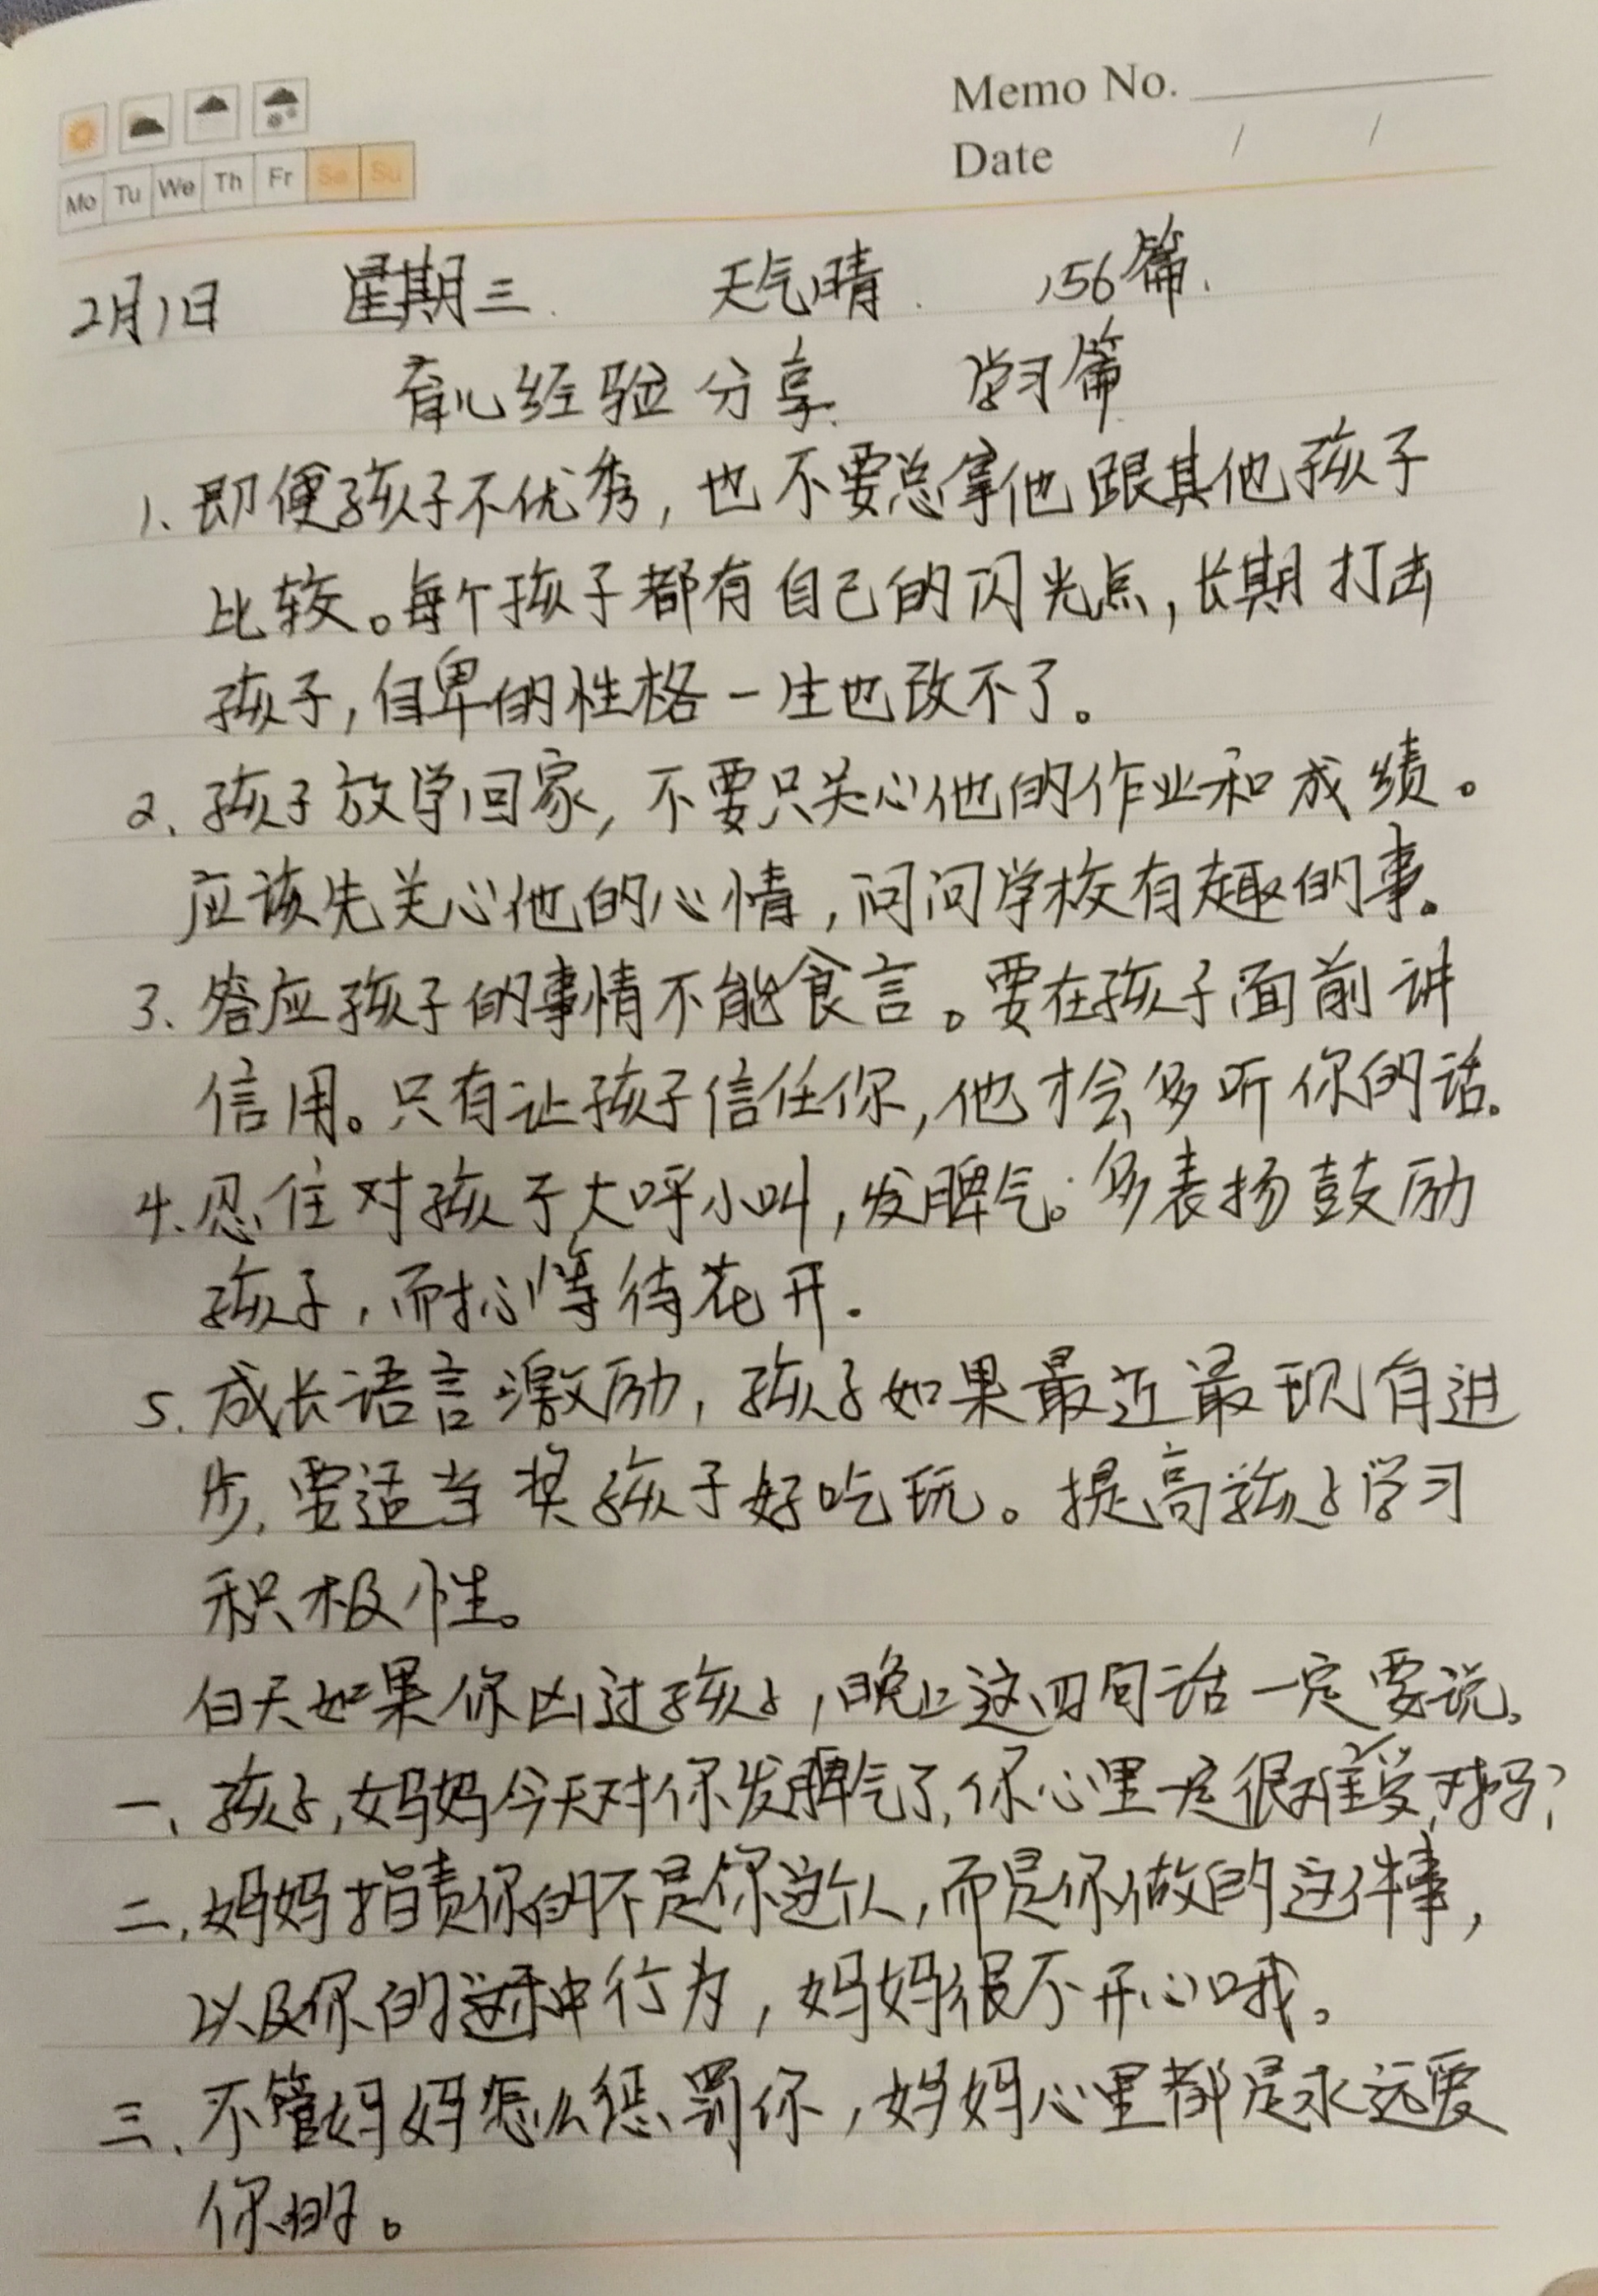 Memo No.
Date / /
Mo Tu We Th Fr Sa Su
2月1日 星期三. 天气晴. 156篇.
育儿经验分享. 学习篇
1、即便孩子不优秀，也不要总拿他跟其他孩子
比较。每个孩子都有自己的闪光点，长期打击
孩子，自卑的性格一生也改不了。
2、孩子放学回家，不要只关心他的作业和成绩。
应该先关心他的心情，问问学校有趣的事。
3、答应孩子的事情不能食言。要在孩子面前讲
信用。只有让孩子信任你，他才会多听你的话。
4、忍住对孩子大呼小叫，发脾气。多表扬鼓励
孩子，而心等待花开.
5. 成长语言激励，孩子如果最近最现有进
步，要适当奖孩子好吃玩。提高孩子学习
积极性。
白天如果你凶过孩子，晚上这四句话一定要说。
一、孩子，妈妈今天对你发脾气了，你心里一定很难受，对吗？
二、妈妈指责你的不是你这个人，而是你做的这件事，
以及你的这种行为，妈妈很不开心哦。
三、不管妈妈怎么惩罚你，妈妈心里都是永远爱
你的。